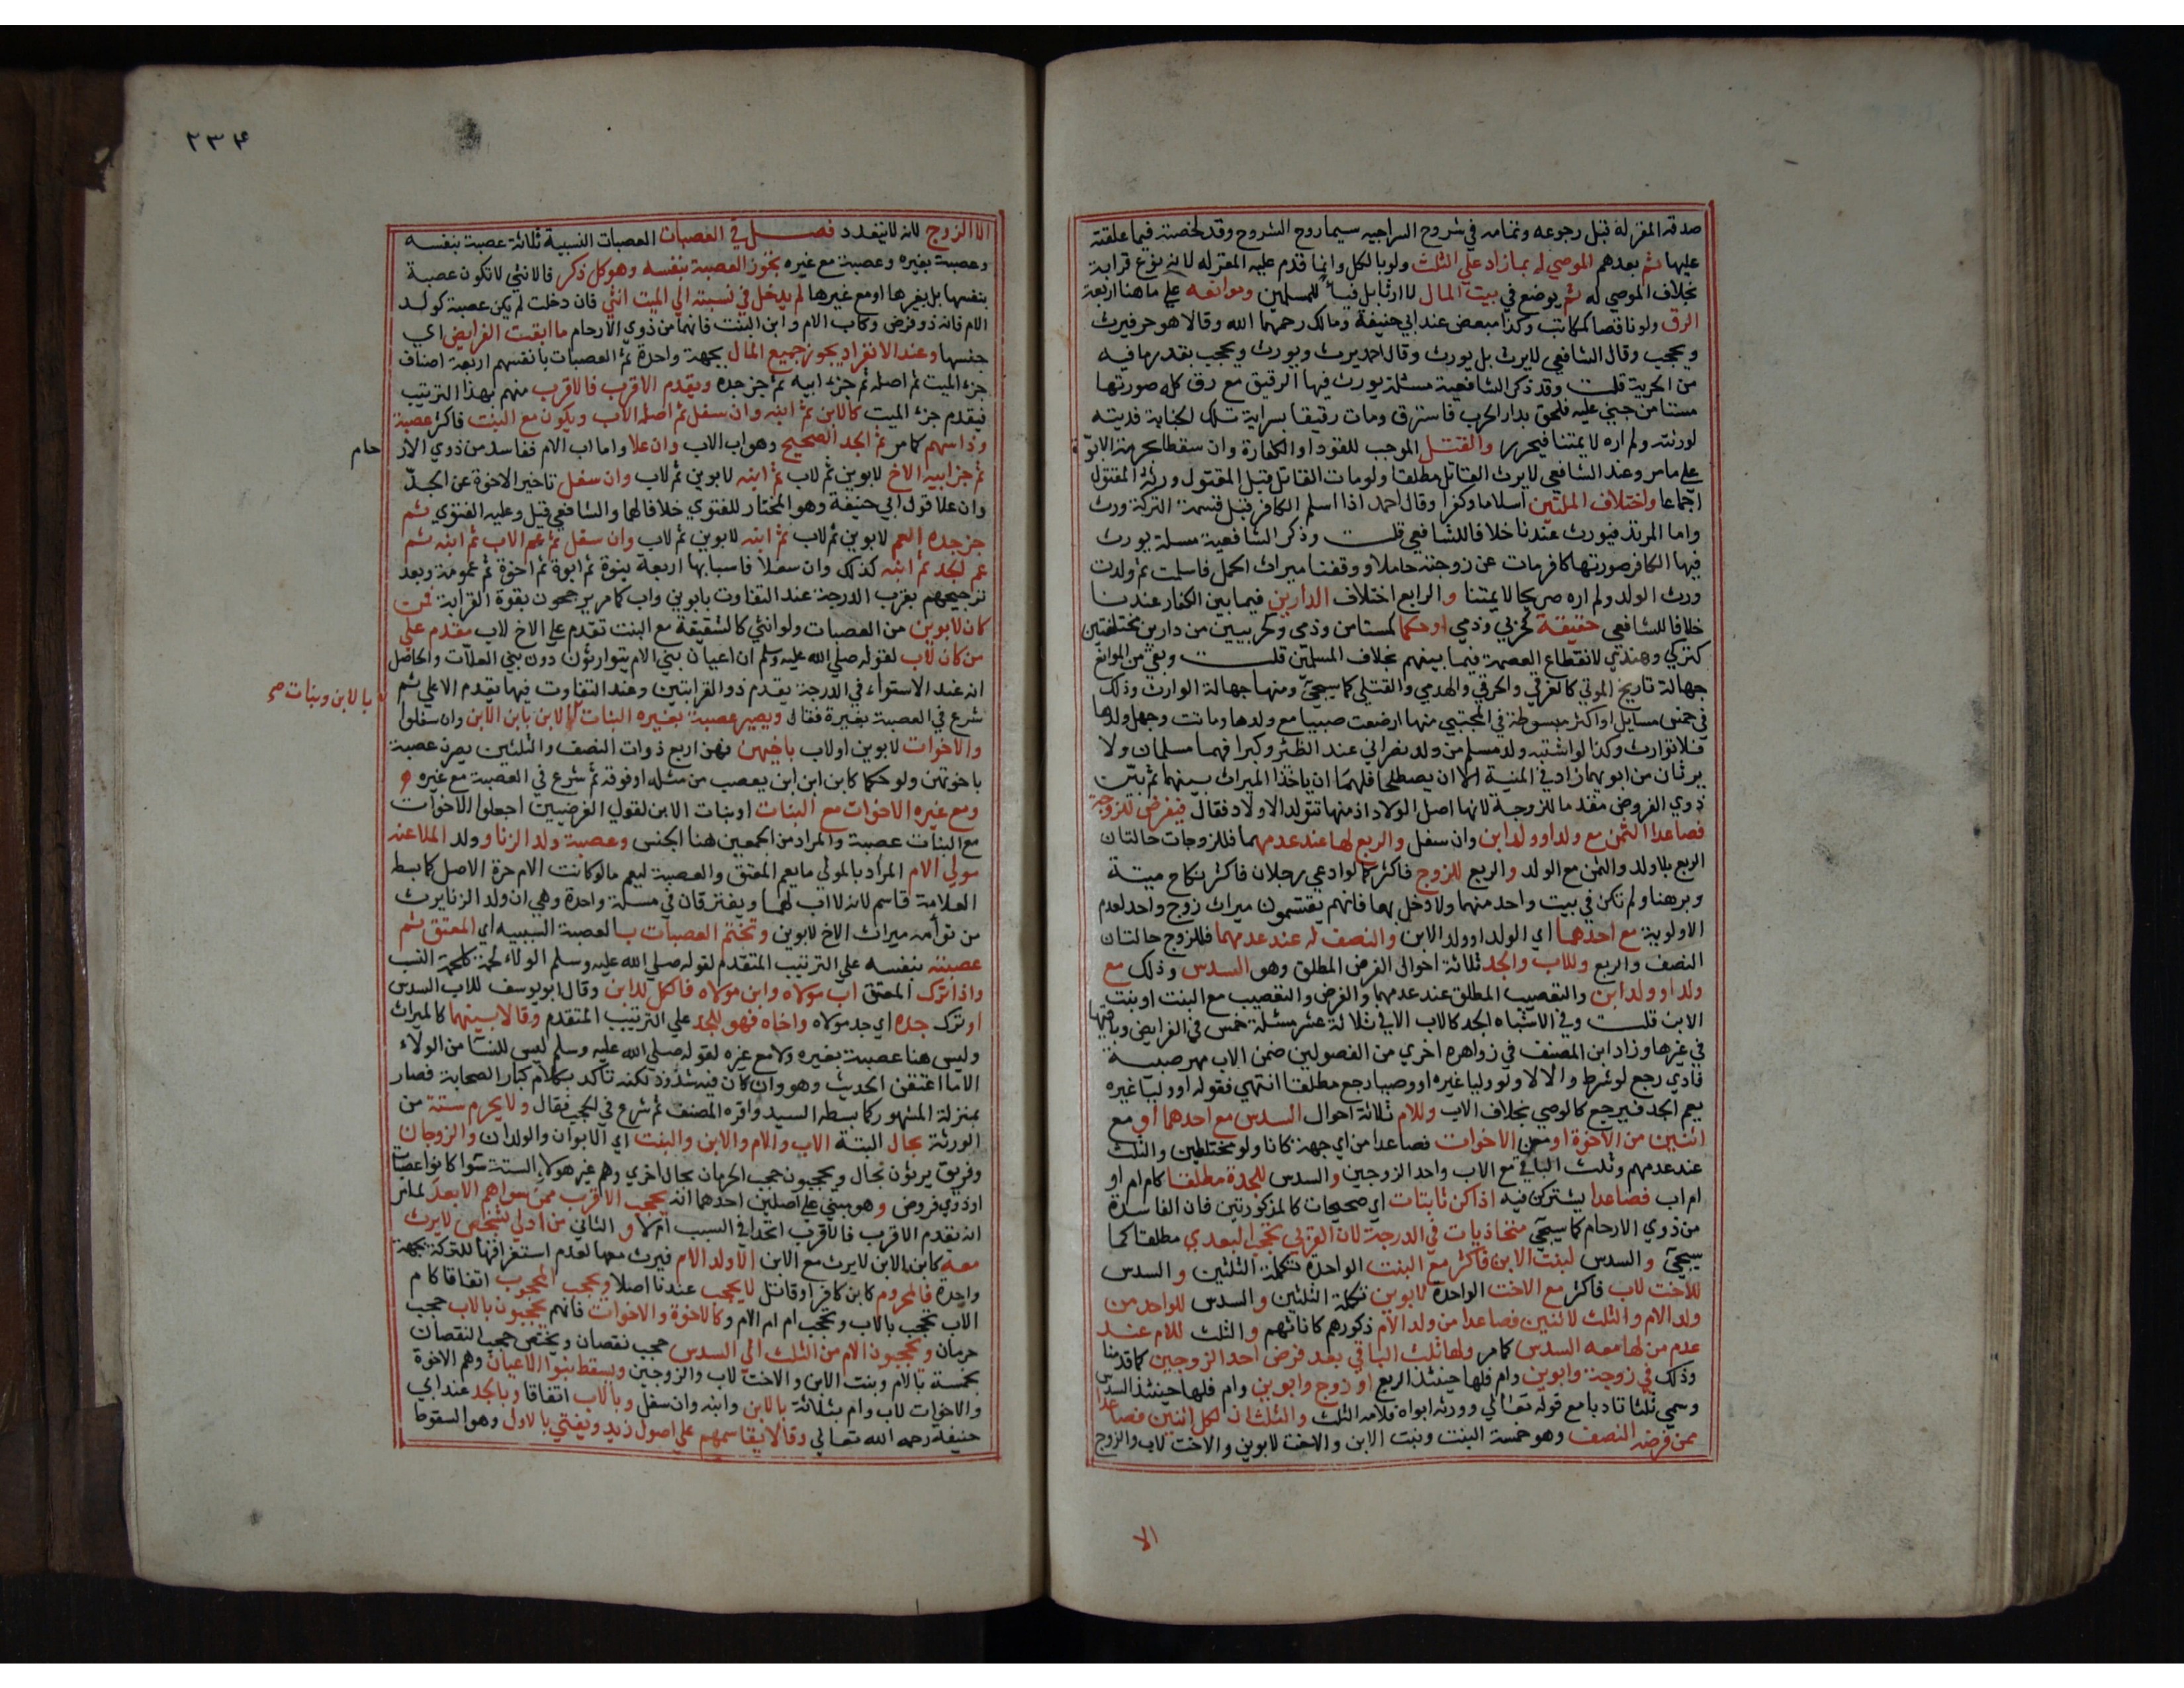 صدقه المقر له قبل رجوعه وتمامه في شروح السراجيه سيما روح الشروح وقد لخصته فيما علقته
عليها ثم بعدهم الموصي له بما زاد علي الثلث ولو بالكل وانما قدم عليه المقر له لانه نوع قرابة
بخلاف الموصي له ثم يوضع في بيت المال لا ارثا بل فيئا للمسلمين وموانعه علي ما هنا اربعة
الرق ولو ناقصا كمكاتب وكذا مبعض عند ابي حنيفة ومالك رحمهما الله وقالا هو حر فيرث
ويحجب وقال الشافعي لا يرث بل يورث وقال احمد يرث ويورث ويحجب بقدر ما فيه
من الحرية قلت وقد ذكر الشافعية مسئلة يورث فيها الرقيق مع رق كله صورتها
مستامن جني عليه فلحق بدار الحرب فاسترق ومات رقيقا بسراية تلك الجناية فديته
لورثته ولم اره لائمتنا فيحرر والقتل الموجب للقود او الكفارة وان سقطا بحرمة الابوة
علي ما مر وعند الشافعي لا يرث القاتل مطلقا ولو مات القاتل قبل المقتول ورثه المقتول
اجماعا واختلاف الملتين اسلاما وكفرا وقال احمد اذا اسلم الكافر قبل قسمة التركة ورث
واما المرتد فيورث عندنا خلافا للشافعي قلت وذكر الشافعية مسلة يورث
فيها الكافر صورتها كافر مات عن زوجته حاملا ووقفنا ميراث الحمل فاسلمت ثم ولدت
ورث الولد ولم اره صريحا لائمتنا والرابع اختلاف الدارين فيما بين الكفار عندنا
خلافا للشافعي حقيقة كحربي وذمي او حكما كمستامن وذمي وكحربيين من دارين مختلفتين
كتركي وهندي لانقطاع العصمة فيما بينهم بخلاف المسلمين قلت وبقي من الموانع
جهالة تاريخ الموتي كالغرقي والحرقي والهدمي والقتلي كما سيجئ ومنها جهالة الوارث وذلك
في خمس مسايل او اكثر مبسوطة في المجتبي منها ارضعت صبيا مع ولدها وماتت وجهل ولدها
فلا توارث وكذا لو اشتبه ولد مسلم من ولد نصراني عند الظئر وكبرا فهما مسلمان ولا
يرثان من ابويهما زاد في المنية الا ان يصطلحا فلهما ان ياخذا الميراث بينهما ثم بين
ذوي الفروض مقدما للزوجة لانها اصل الولاد اذ منها تتولد الاولاد فقال فيفرض للزوجة
فصاعدا الثمن مع ولد او ولد ابن وان سفل والربع لها عند عدمهما فللزوجات حالتان
الربع بلا ولد والثمن مع الولد والربع للزوج فاكثر كما لو ادعي رجلان فاكثر نكاح ميتة
وبرهنا ولم تكن في بيت واحد منهما ولا دخل بها فانهم يقتسمون ميراث زوج واحد لعدم
الاولوية مع احدهما اي الولد او ولد الابن والنصف له عند عدمهما فللزوج حالتان
النصف والربع وللاب والجد ثلاثة احوال الفرض المطلق وهو السدس وذلك مع
ولد او ولد ابن والتعصيب المطلق عند عدمهما والفرض والتعصيب مع البنت او بنت
الابن قلت وفي الاشباه الجد كالاب الا في ثلاثة عشر مسئلة خمس في الفرايض وباقيها
في غيرها وزاد ابن المصنف في زواهره اخري من الفصولين ضمن الاب مهر صبيه
فادي رجع لو شرط والا لا ولو وليا غيره او وصيا رجع مطلقا انتهي فقوله او وليا غيره
يعم الجد فيرجع كالوصي بخلاف الاب وللام ثلاثة احوال السدس مع احدهما او مع
اثنين من الاخوة او من الاخوات فصاعدا من اي جهة كانا ولو مختلطين والثلث
عند عدمهم وثلث الباقي مع الاب واحد الزوجين والسدس للجدة مطلقا كام ام او
ام اب فصاعدا يشتركن فيه اذا كن ثابتات اي صحيحات كالمذكورتين فان الفاسدة
من ذوي الارحام كما سيجئ متحاذيات في الدرجة لان القربي تحجب البعدي مطلقا كما
سيجئ والسدس لبنت الابن فاكثر مع البنت الواحدة تكملة الثلثين والسدس
للاخت لاب فاكثر مع الاخت الواحدة لابوين تكملة الثلثين والسدس للواحد من
ولد الام والثلث لاثنين فصاعدا من ولد الام ذكورهم كاناثهم والثلث للام عند
عدم من لها معه السدس كما مر ولها ثلث الباقي بعد فرض احد الزوجين كما قدمنا
وذلك في زوجة وابوين وام فلها حينئذ الربع او زوج وابوين وام فلها حينئذ السدس
وسمي ثلثا تادبا مع قوله تعالي وورثه ابواه فلامه الثلث والثلثان لكل اثنين فصاعدا
ممن فرضه النصف وهو خمسة البنت وبنت الابن والاخت لابوين والاخت لاب والزوج
الا
٢٣٤
الا الزوج لانه لا يتعدد فصل في العصبات العصبات النسبية ثلاثة عصبة بنفسه
وعصبة بغيره وعصبة مع غيره يحوز العصبة بنفسه وهو كل ذكر فالانثي لا تكون عصبة
بنفسها بل بغيرها او مع غيرها لم يدخل في نسبته الي الميت انثي فان دخلت لم يكن عصبة كولد
الام فانه ذو فرض وكاب الام وابن البنت فانهما من ذوي الارحام ما ابقت الفرايض اي
جنسها وعند الانفراد يحوز جميع المال بجهة واحدة ثم العصبات بانفسهم اربعة اصناف
جزء الميت ثم اصله ثم جزء ابيه ثم جزء جده ويقدم الاقرب فالاقرب منهم بهذا الترتيب
فيقدم جزء الميت كالابن ثم ابنه وان سفل ثم اصله الاب ويكون مع البنت فاكثر عصبة
وذا سهم كما مر ثم الجد الصحيح وهو اب الاب وان علا واما اب الام ففاسد من ذوي الار حام
ثم جزء ابيه الاخ لابوين ثم لاب ثم ابنه لابوين ثم لاب وان سفل تاخير الاخوة عن الجد
وان علا قول ابي حنيفة وهو المختار للفتوي خلافا لهما والشافعي قيل وعليه الفتوي ثم
جزء جده العم لابوين ثم لاب ثم ابنه لابوين ثم لاب وان سفل ثم عم الاب ثم ابنه ثم
عم الجد ثم ابنه كذلك وان سفلا فاسبابها اربعة بنوة ثم ابوة ثم اخوة ثم عمومة وبعد
ترجيحهم بقرب الدرجة عند التفاوت بابوين واب كما مر يرجحون بقوة القرابة فمن
كان لابوين من العصبات ولو انثي كالشقيقة مع البنت تقدم علي الاخ لاب مقدم علي
من كان لاب لقوله صلي الله عليه وسلم ان اعيان بني الام يتوارثون دون بني العلات والحاصل
انه عند الاستواء في الدرجة يقدم ذو القرابتين وعند التفاوت فيها يقدم الاعلي ثم
شرع في العصبة بغيره فقال ويصير عصبة بغيره البنات بالابن وبنات صح الابن بابن الابن وان سفلوا
والاخوات لابوين او لاب باخيهن فهن اربع ذوات النصف والثلثين يصرن عصبة
باخوتهن ولو حكما كابن ابن ابن يعصب من مثله او فوقه ثم شرع في العصبة مع غيره و
ومع غيره الاخوات مع البنات او بنات الابن لقول الفرضيين اجعلوا الاخوات
مع البنات عصبة والمراد من الجمعين هنا الجنس وعصبة ولد الزنا وولد الملاعنه
مولي الام المراد بالمولي ما يعم المعتق والعصبة ليعم ما لو كانت الام حرة الاصل كما بسطه
العلامة قاسم لانه لا اب لهما ويفترقان في مسلة واحدة وهي ان ولد الزنا يرث
من توأمه ميراث الاخ لابوين وتختم العصبات بالعصبة السببيه اي المعتق ثم
عصبته بنفسه علي الترتيب المتقدم لقوله صلي الله عليه وسلم الولاء لحمة كلحمة النسب
واذا ترك المعتق اب مولاه وابن مولاه فالكل للابن وقال ابو يوسف للاب السدس
او ترك جده اي جد مولاه واخاه فهو للجد علي الترتيب المتقدم وقالا بينهما كالميراث
وليس هنا عصبة بغيره ولا مع غيره لقوله صلي الله عليه وسلم ليس للنسا من الولاء
الا ما اعتقن الحديث وهو وان كان فيه شذوذ لكنه تاكد بكلام كبار الصحابة فصار
بمنزلة المشهور كما بسطه السيد واقره المصنف ثم شرع في الحجب فقال ولا يحرم ستة من
الورثة بحال البتة الاب والام والابن والبنت اي الابوان والولدان والزوجان
وفريق يرثون بحال ويحجبون حجب الحرمان بحال اخري وهم غير هولاء الستة سوا كانوا عصبات
او ذوي فروض وهو مبني علي اصلين احدهما انه يحجب الاقرب ممن سواهم الابعد لما مر
انه يقدم الاقرب فالاقرب اتحدا في السبب ام لا والثاني من ادلي بشخص لا يرث
معه كابن الابن لا يرث مع الابن الا ولد الام فيرث معها لعدم استغراقها للتركة بجهة
واحدة فالمحروم كابن كافر او قاتل لا يحجب عندنا اصلا ويحجب المحجوب اتفاقا كام
الاب تحجب بالاب وتحجب ام ام الام وكالاخوة والاخوات فانهم يحجبون بالاب حجب
حرمان ويحجبون الام من الثلث الي السدس حجب نقصان ويختص حجب النقصان
بخمسة بالام وبنت الابن والاخت لاب والزوجين ويسقط بنوا الاعيان وهم الاخوة
والاخوات لاب وام بثلاثة بالابن وابنه وان سفل وبالاب اتفاقا وبالجد عند ابي
حنيفة رحمه الله تعالي وقالا يقاسمهم علي اصول زيد ويفتي بالاول وهو السقوط